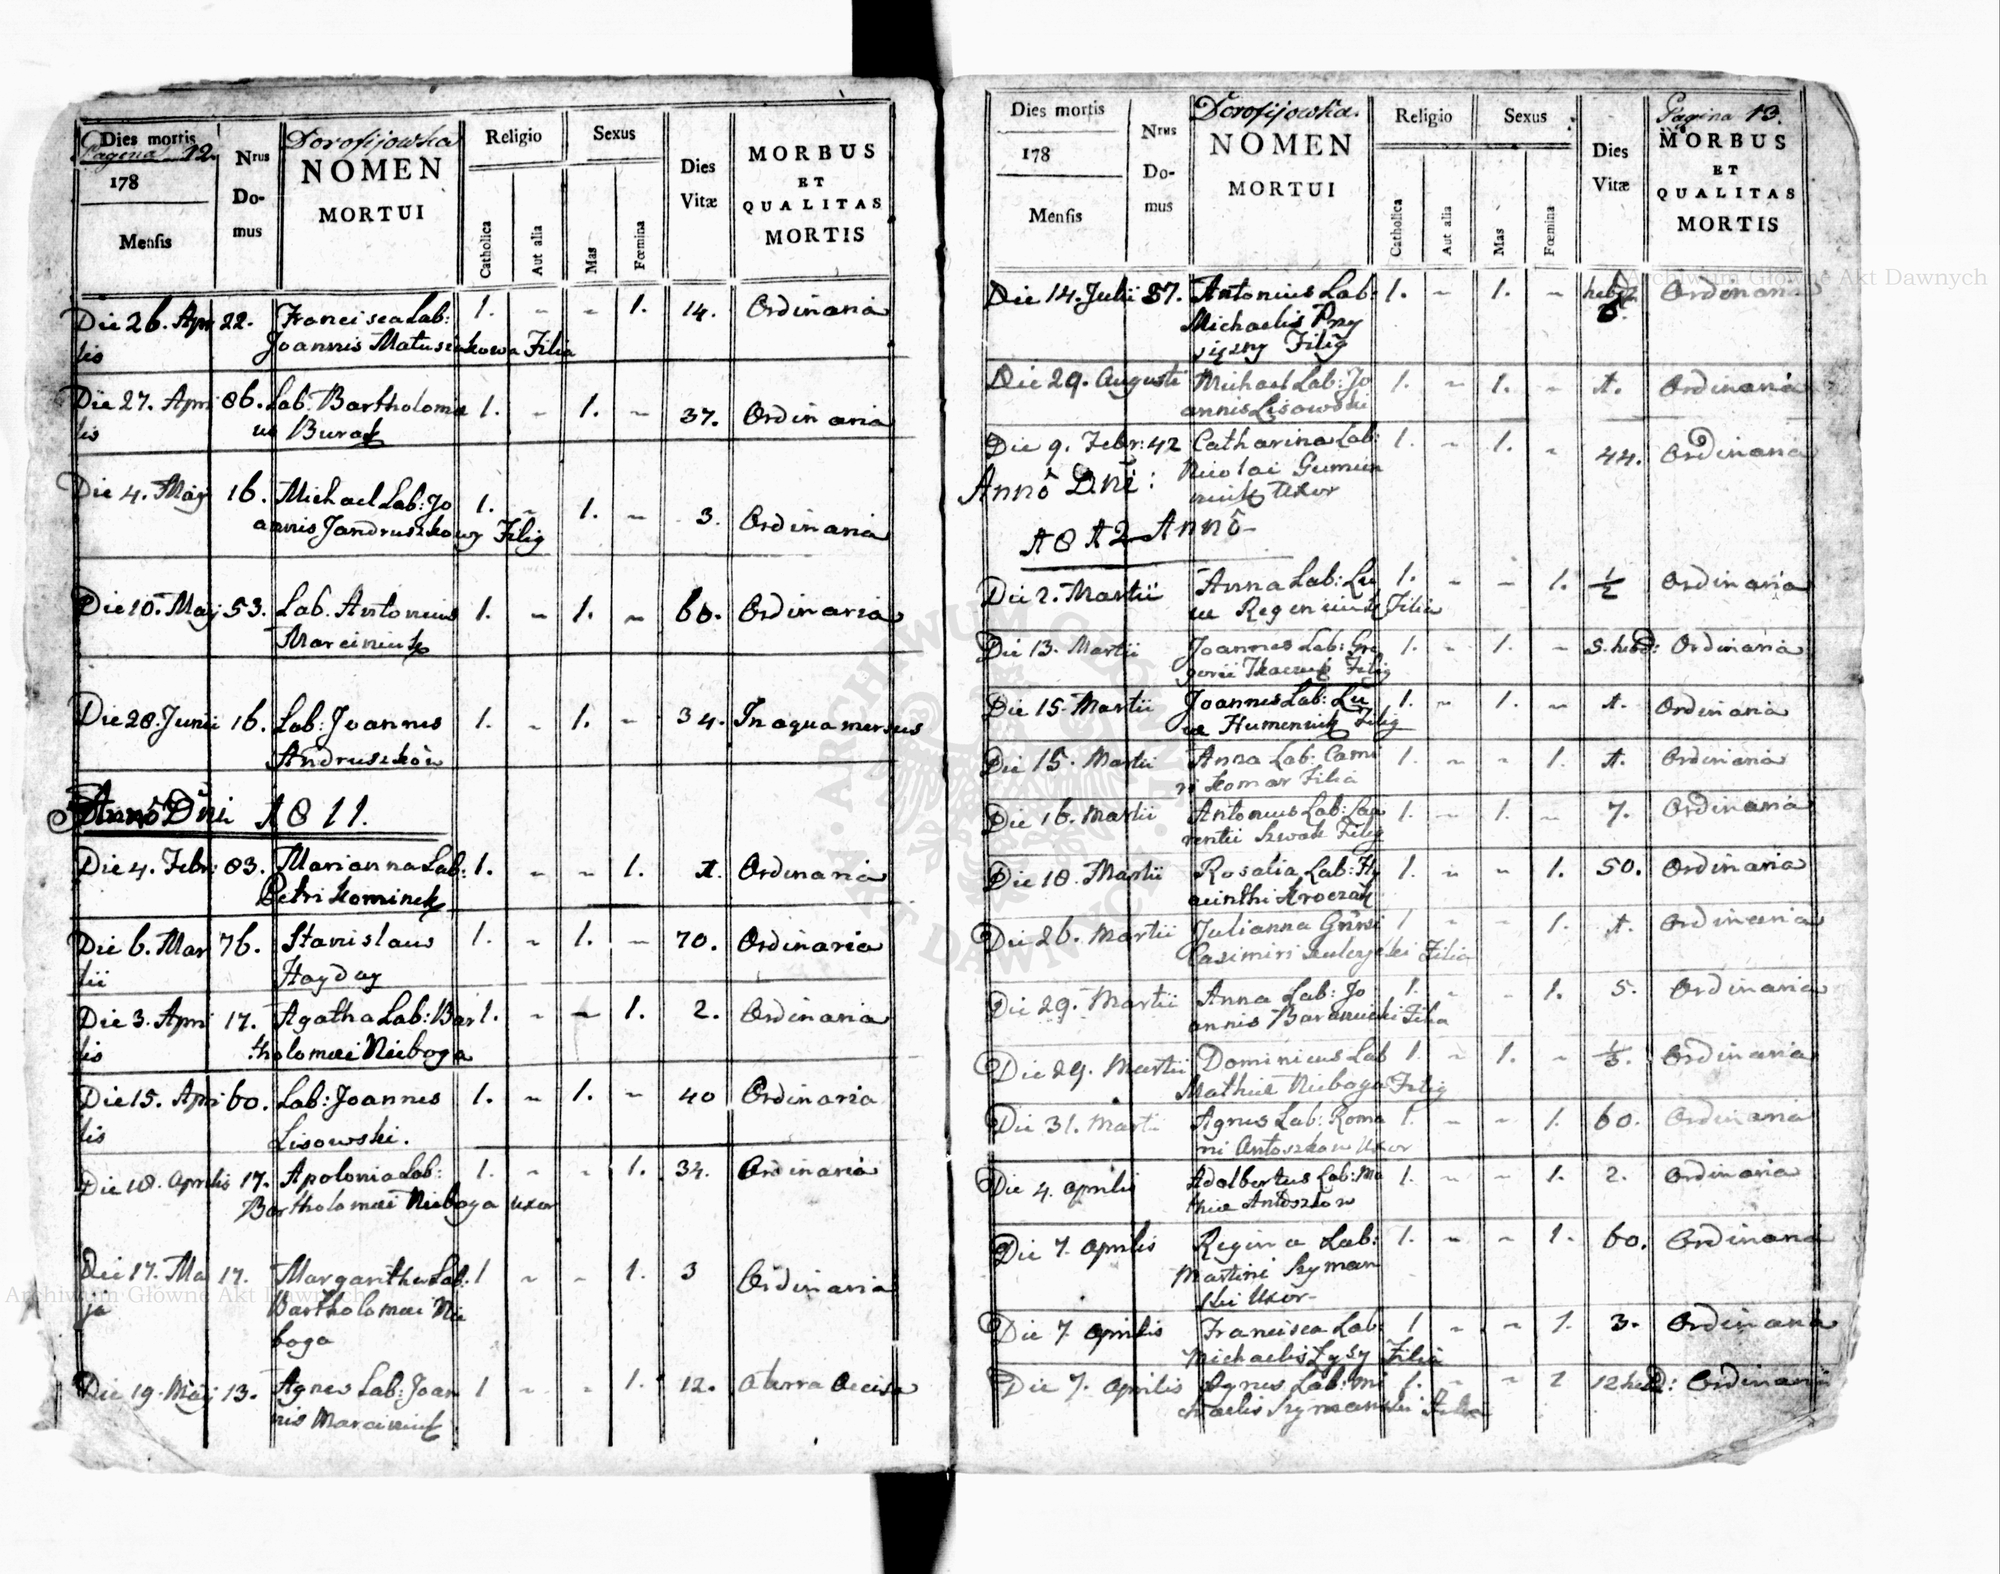 Dies mortis
Pagina 12.
178
Mensis
Nrus
Do-
mus
Dorofijowka
NOMEN
MORTUI
Religio
Catholica
Aut alia
Sexus
Mas
Fœmina
Dies
Vitæ
MORBUS
ET
QUALITAS
MORTIS
Die 26. Apri 22. Francisca Lab: 1. - - 1. 14. Ordinaria
lis Joannis Matuszakowa Filia
Die 27. Apri 86. Lab. Bartholomæ 1. - 1. - 37. Ordinaria
lis us Burak
Die 4. Maij 16. Michael Lab: Jo 1. - 1. - 3. Ordinaria
annis Jandruszkowy Filig
Die 10. Maij 53. Lab. Antonius 1. - 1. - 60. Ordinaria
Marciniuk
Die 28. Junii 16. Lab: Joannes 1. - 1. - 34. In aqua mersus
Andruszkow
Anno Dni 1811.
Die 4. Febr: 83. Marianna Lab: 1. - - 1. 1. Ordinaria
Petri Kominek
Die 6. Mar 76. Stanislaus 1. - 1. - 70. Ordinaria
tii Hayday
Die 3. Apri 17. Agatha Lab: Bar 1. - - 1. 2. Ordinaria
lis tholomæi Nieboga
Die 15. Apri 60. Lab: Joannes 1. - 1. - 40 Ordinaria
lis Lisowski.
Die 18. Aprilis 17. Apolonia Lab: 1. - - 1. 34. Ordinaria
Bartholomæi Nieboga uxor
Die 17. Ma 17. Margaritha Lab: 1 - - 1. 3 Ordinaria
ja Bartholomæi Nie
boga
Die 19. Maij 13. Agnes Lab: Joan 1 - - 1. 12. a terra occisa
nis Marciniuk
Dies mortis
178
Mensis
Nrus
Do-
mus
Dorofijowka.
NOMEN
MORTUI
Religio
Catholica
Aut alia
Sexus
Mas
Fœmina
Dies
Vitæ
Pagina 13.
MORBUS
ET
QUALITAS
MORTIS
Die 14. Julii 37. Antonius Lab: 1. - 1. - hebd: Ordinaria
Michaelis Pry 8.
siężny Filig
Die 29. Augusti Michael Lab: Jo 1. - 1. - 1. Ordinaria
annis Lisowski
Die 9. Febr: 42 Catharina Lab: 1. - 1. - 44. Ordinaria
Nicolai Gumien
niuk Uxor
Anno Dni:
1812 Anno
Die 2. Martii Anna Lab: Lu 1. - - 1. 1/2 Ordinaria
cæ Regeniuk Filia
Die 13. Martii Joannes Lab: Gre 1. - 1. - 5. hebd: Ordinaria
gorii Tkaczuk Filig
Die 15. Martii Joannes Lab: Lu 1. - 1. - 1. Ordinaria
cæ Humeniuk Filig
Die 15. Martii Anna Lab: 1. - - 1. 1. Ordinaria
Komar Filia
Die 16. Martii Antonius Lab: Lau 1. - 1. - 7. Ordinaria
rentii Szwak Filig
Die 18. Martii Rosalia Lab: Hy 1. - - 1. 50. Ordinaria
acinthi Kroczak
Die 26. Martii Julianna 1 - - 1. 1. Ordinaria
Casimiri Filia
Die 29. Martii Anna Lab: Jo 1. - - 1. 5. Ordinaria
annis Baranicki Filia
Die 29. Martii Dominicus Lab 1. - 1. - 1/3. Ordinaria
Mathiæ Nieboga Filig
Die 31. Martii Agnes Lab: Roma 1. - - 1. 60. Ordinaria
ni Antoszkow Uxor
Die 4. Aprilis Adalbertus Lab: Ma 1. - - 1. 2. Ordinaria
thiæ Antoszkow
Die 7. Aprilis Regina Lab: 1. - - 1. 60. Ordinaria
Martini Szyman
ski Uxor
Die 7. Aprilis Francisca Lab: 1 - - 1. 3. Ordinaria
Michaelis Łysy Filia
Die 7. Aprilis Agnes Lab: Mi 1. - - 1 12 hebd: Ordinaria
chaelis Szymanski Filia
Archiwum Główne Akt Dawnych
Archiwum Główne Akt Dawnych
ARCHIWUM GŁÓWNE AKT DAWNYCH